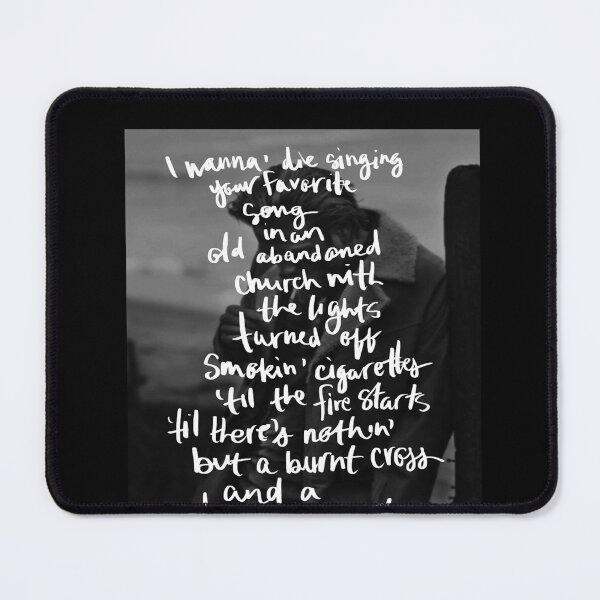 I wanna' die singing
your favorite
song
in an
old abandoned
church with
the lights
turned off
smokin' cigarettes
'til the fire starts
'til there's nothin'
but a burnt cross
and a